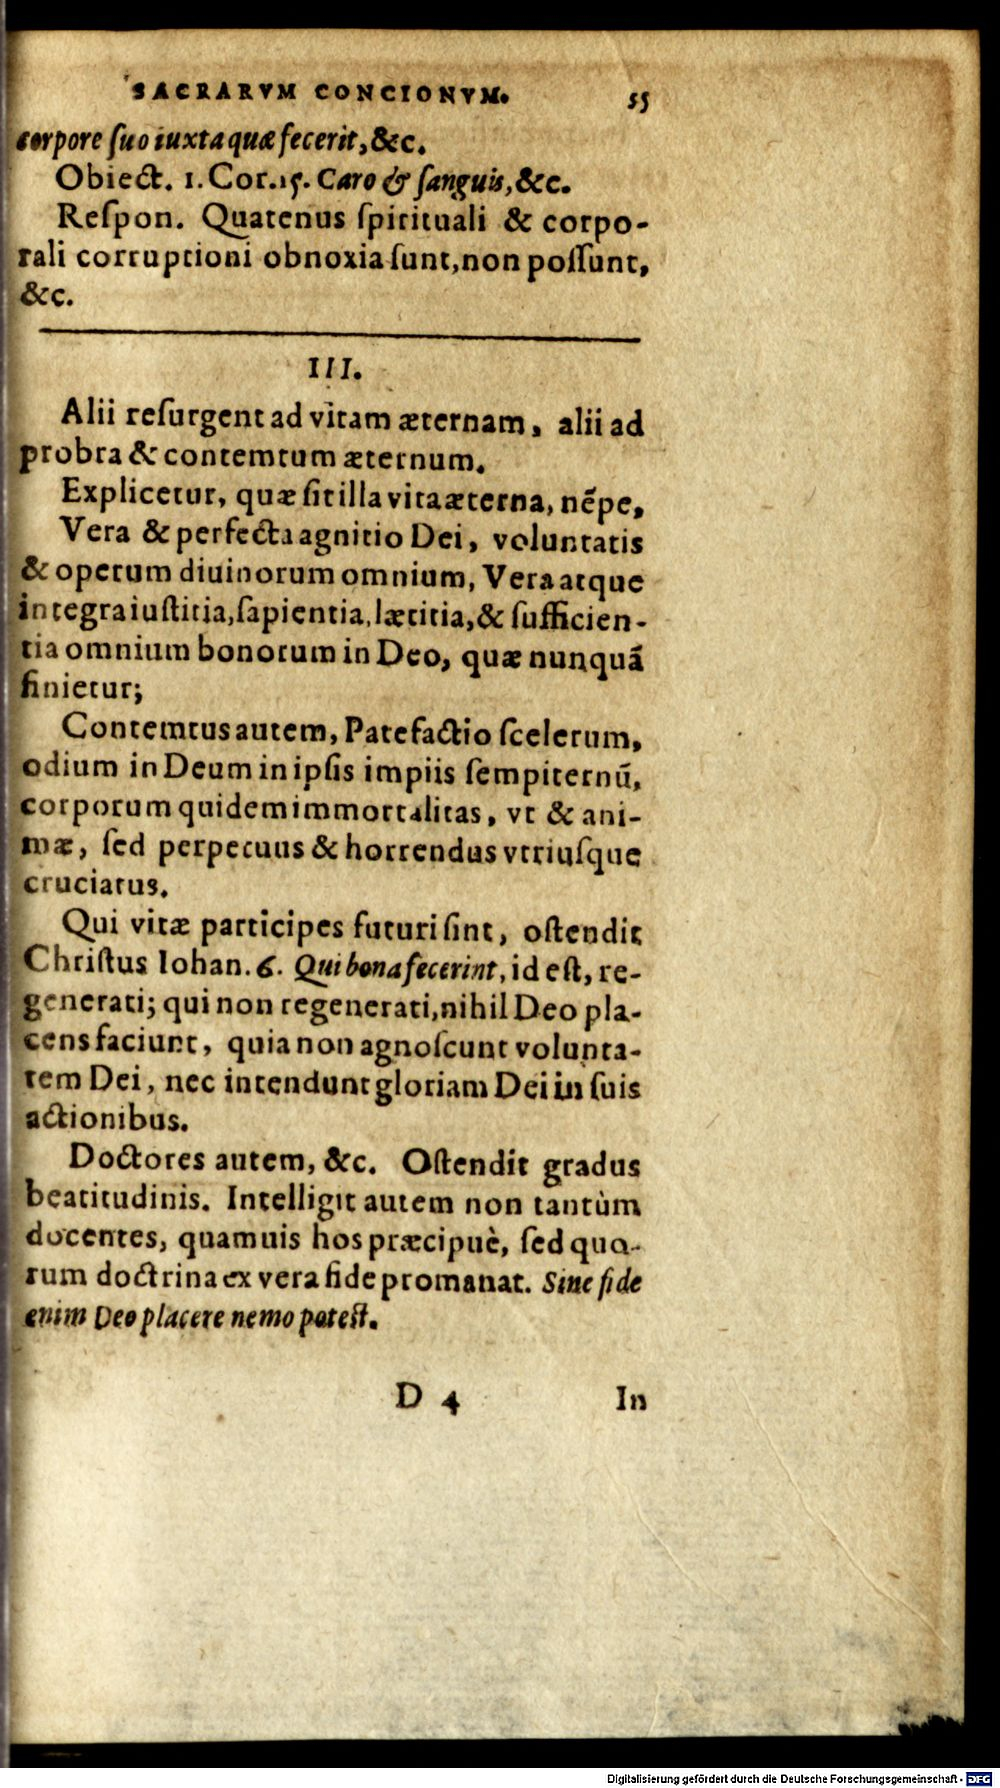 SACRARVM CONCIONVM. 55
corpore ſuo iuxta quæ fecerit, &c.
Obiect. 1. Cor. 15. Caro & ſanguis, &c.
Reſpon. Quatenus ſpirituali & corpo-
rali corruptioni obnoxia ſunt, non poſſunt,
&c.
III.
Alii reſurgent ad vitam æternam, alii ad
probra & contemtum æternum.
Explicetur, quæ ſit illa vita æterna, nẽpe,
Vera & perfecta agnitio Dei, voluntatis
& operum diuinorum omnium, Vera atque
integra iuſtitia, ſapientia, lætitia, & ſufficien-
tia omnium bonorum in Deo, quæ nunquã
finietur;
Contemtus autem, Patefactio ſcelerum,
odium in Deum in ipſis impiis ſempiternũ,
corporum quidem immortalitas, vt & ani-
mæ, ſed perpetuus & horrendus vtriuſque
cruciatus.
Qui vitæ participes futuri ſint, oſtendit
Chriſtus Iohan. 6. Qui bona fecerint, id eſt, re-
generati; qui non regenerati, nihil Deo pla-
cens faciunt, quia non agnoſcunt volunta-
tem Dei, nec intendunt gloriam Dei in ſuis
actionibus.
Doctores autem, &c. Oſtendit gradus
beatitudinis. Intelligit autem non tantùm
docentes, quamuis hos præcipuè, ſed quo-
rum doctrina ex vera fide promanat. Sine fide
enim Deo placere nemo poteſt.
D 4 In
Digitalisierung gefördert durch die Deutsche Forschungsgemeinschaft - DFG